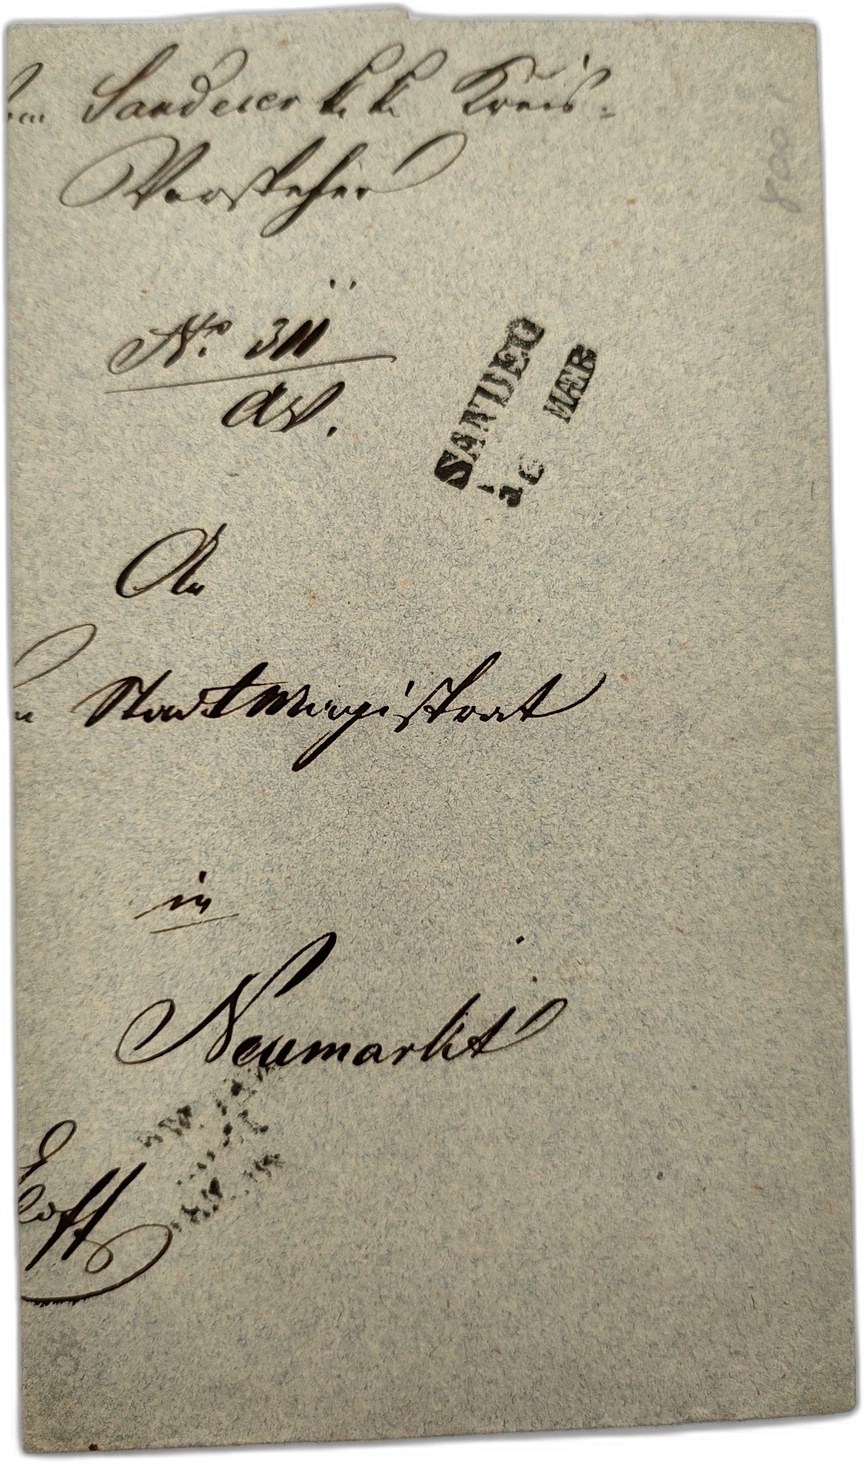 Sandecer k. k. Kreis-
Vorsteher
No. 311
SANDEC
MÆR
An
Stadtmagistrat
in
Neumarkt